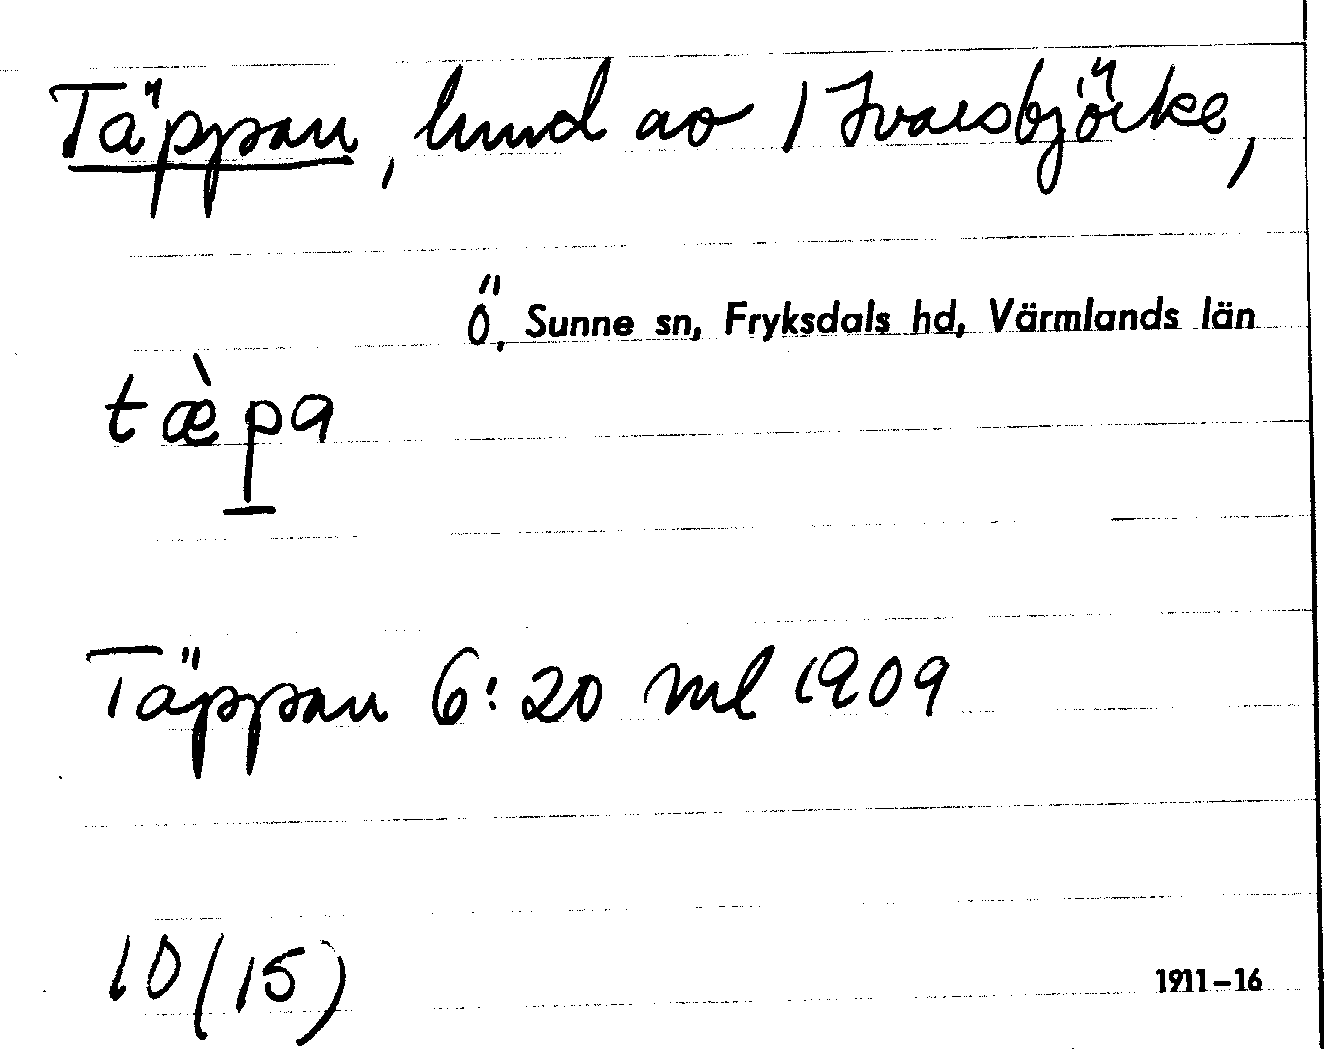 Täppan, lund av 1 Ivarsbjörke,
Ö, Sunne sn, Fryksdals hd, Värmlands län
tæ̀p̲a
Täppan 6:20 ml 1909
10 (15)
1911-16